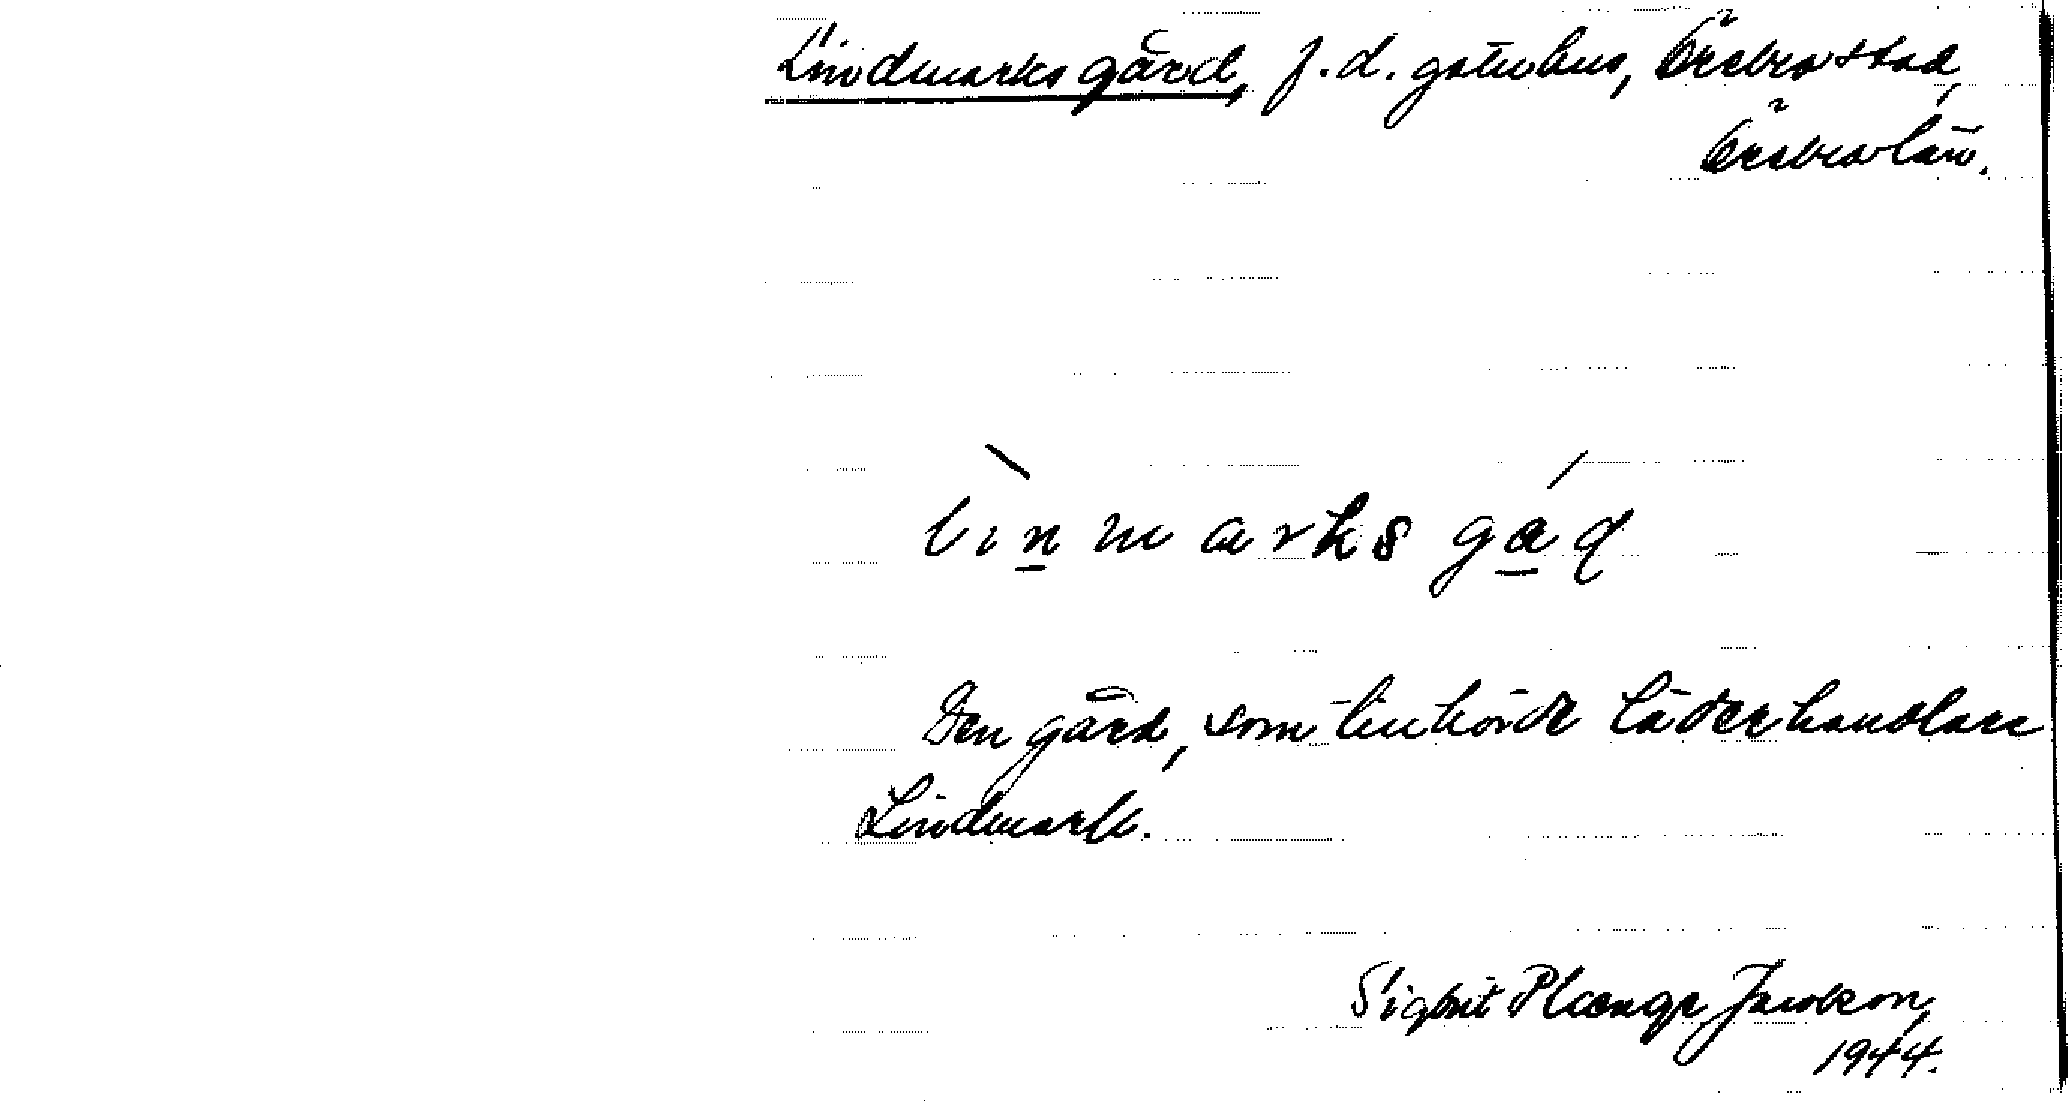 Lindmarks gård, f.d. gatuhus, Örebro stad,
Örebro län.
lìnmarksgáɖ
Den gård, som tillhörde läderhandlare
Lindmark.
Sigbrit Plænge Jacobson,
1944.